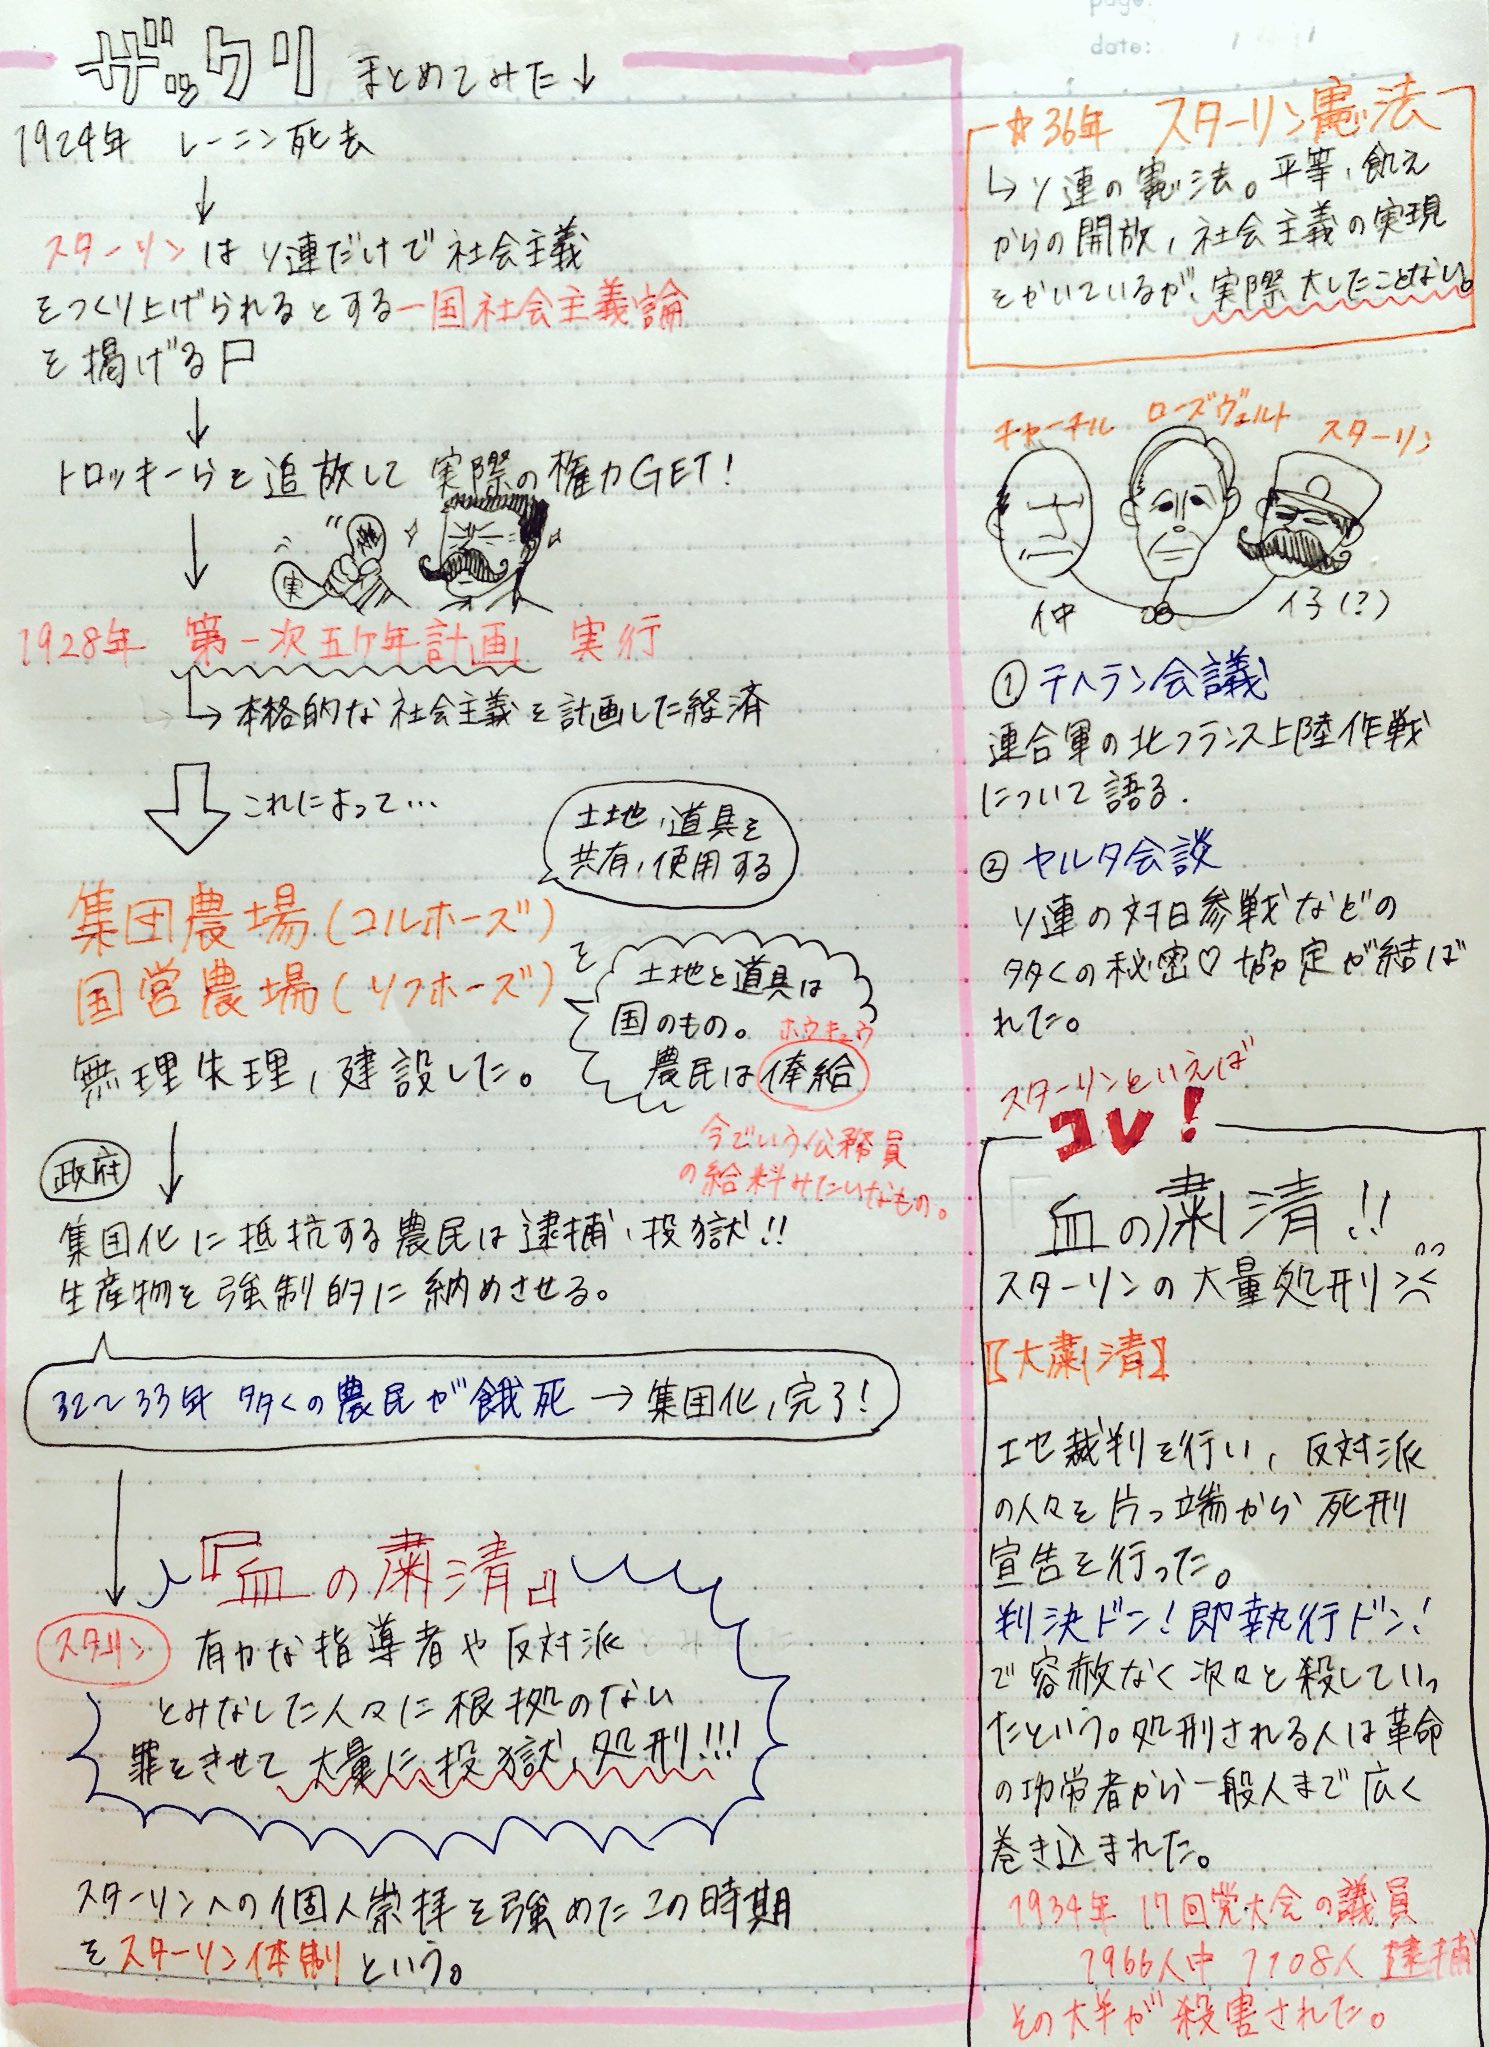 ザックリ まとめてみた↓
1924年 レーニン死去
↓
スターリンはソ連だけで社会主義
をつくり上げられるとする一国社会主義論
を掲げる
↓
トロッキーらを追放して実際の権力GET!
↓
実
権
1928年 第一次五ヶ年計画 実行
↳本格的な社会主義を計画した経済
これによって…
土地、道具を
共有、使用する
集団農場(コルホーズ)
を
国営農場(ソフホーズ)
土地と道具は
国のもの。
ホウキュウ
農民は俸給
今でいう公務員
の給料みたいなもの。
無理矢理、建設した。
↓
政府
集団化に抵抗する農民は逮捕、投獄!!
生産物を強制的に納めさせる。
32〜33年 多くの農民が餓死→集団化、完了!
↓
『血の粛清』
スターリン 有力な指導者や反対派
とみなした人々に根拠のない
罪をきせて大量に投獄、処刑!!!
スターリンへの個人崇拝を強めたこの時期
をスターリン体制という。
page:
date: / /
☆36年 スターリン憲法
↳ソ連の憲法。平等、飢え
からの開放、社会主義の実現
をかいているが、実際大したことない。
チャーチル ローズヴェルト スターリン
仲 イ子(?)
① テヘラン会議
連合軍の北フランス上陸作戦
について語る.
② ヤルタ会談
ソ連の対日参戦などの
多くの秘密♡協定が結ば
れた。
スターリンといえば
コレ!
血の粛清!!
スターリンの大量処刑
【大粛清】
裁判を行い、反対派
の人々を片っ端から死刑
宣告を行った。
判決ドン!即執行ドン!
で容赦なく次々と殺していっ
たという。処刑される人は革命
の功労者から一般人まで広く
巻き込まれた。
1934年 17回党大会の議員
1966人中 1108人 逮捕
その大半が殺害された。